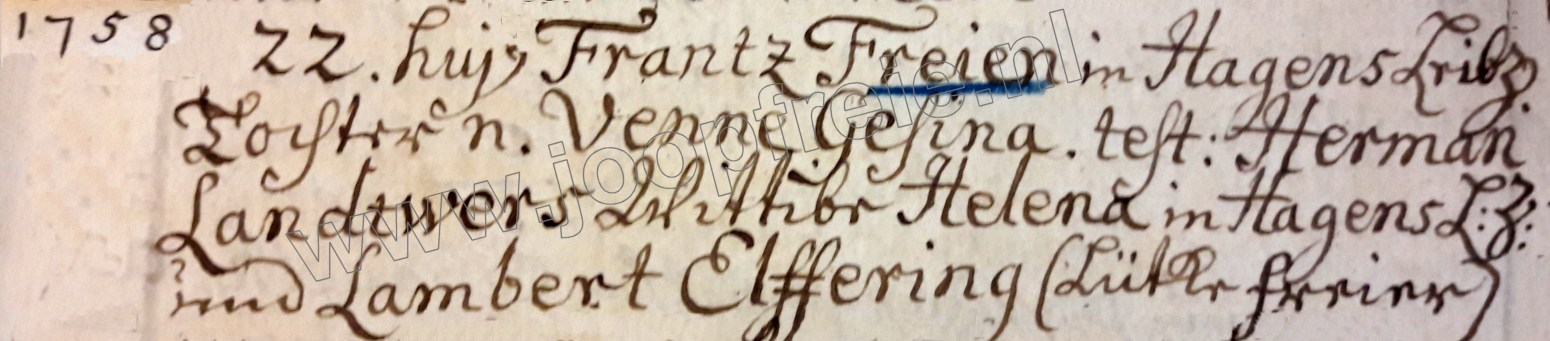 1758 22. hujꝯ Frantz Freien in Hagens Leibz.
Tochter n. Venne Gesina. test: Herman
Landtwers Wittibe Helena in Hagens L: Z:
und Lambert Elffering (Lütke freier)
www.joopfreie.nl